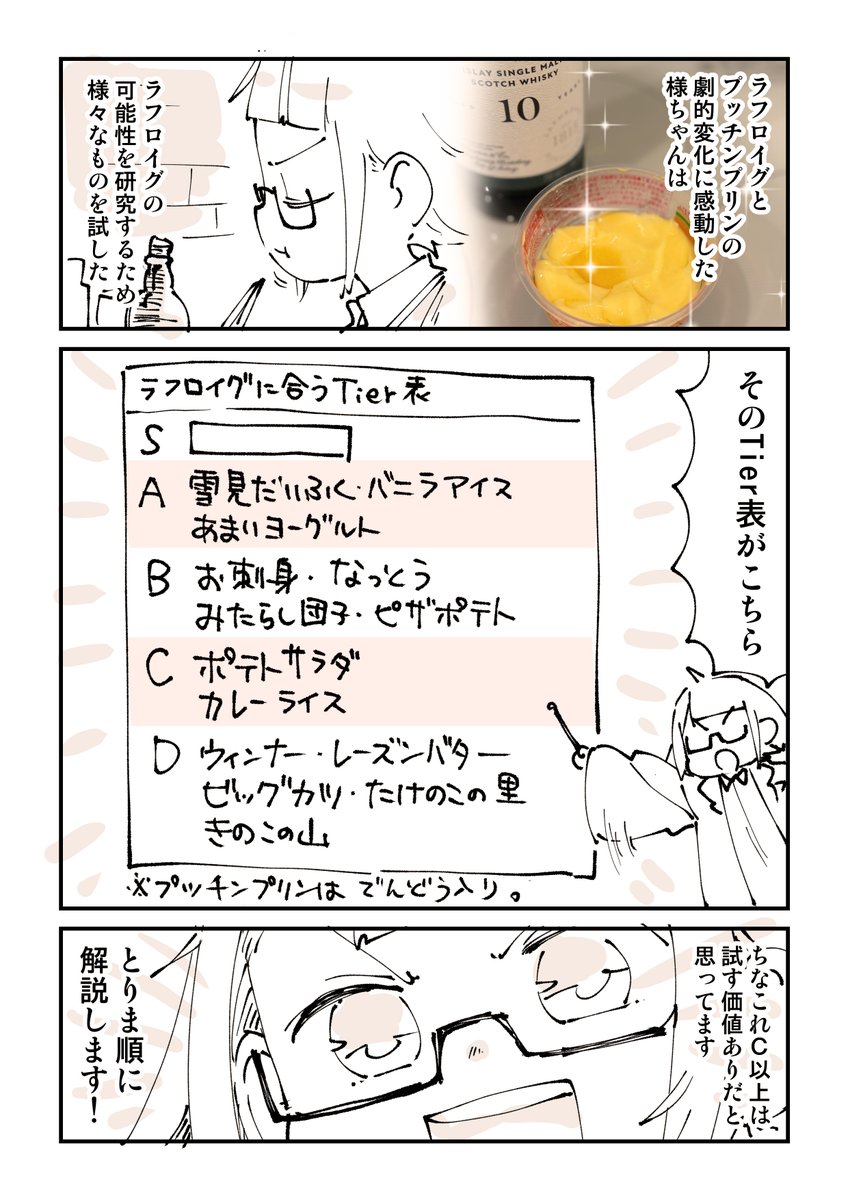 ラフロイグと
プッチンプリンの
劇的変化に感動した
様ちゃんは
ISLAY SINGLE MALT
SCOTCH WHISKY
10
YEARS
ラフロイグの
可能性を研究するため
様々なものを試した
そのTier表がこちら
ラフロイグに合うTier表
S
A 雪見だいふく・バニラアイス
あまいヨーグルト
B お刺身・なっとう
みたらし団子・ピザポテト
C ポテトサラダ
カレーライス
D ウィンナー・レーズンバター
ビッグカツ・たけのこの里
きのこの山
※プッチンプリンはでんどう入り。
ちなこれC以上は
試す価値ありだと
思ってます
とりま順に
解説します!